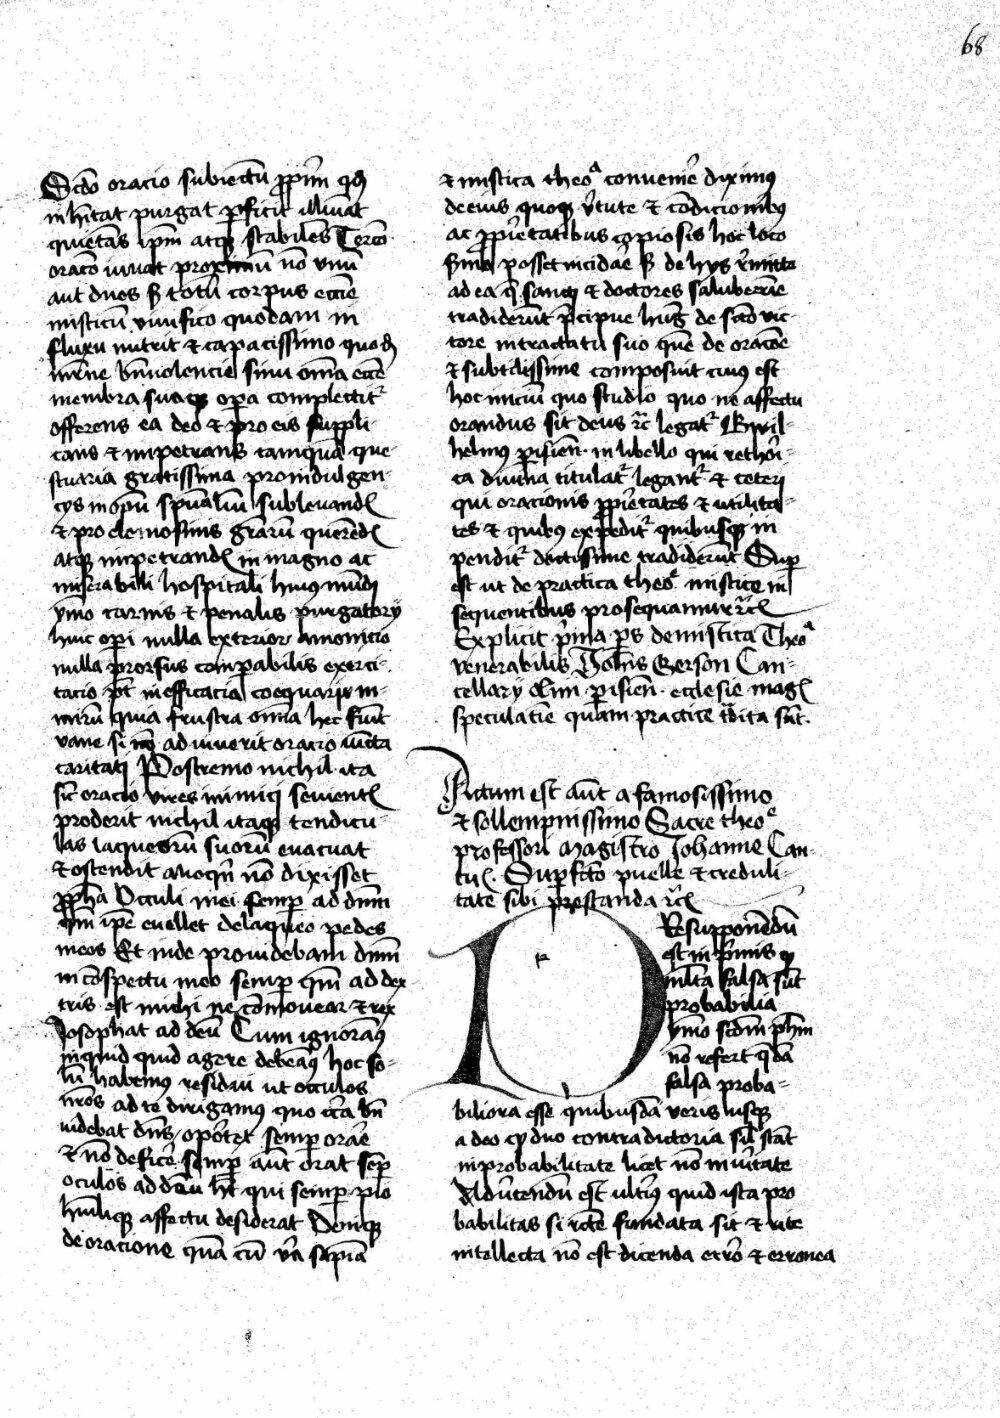 68
Scdo oracio subiectū ꝓpriū qd
inhītat purgat ꝑficit illuīat
quietās ipm̄ atqꝫ stabiles Tercō
oracō iuuat proximū nō vnū
aut duos sꝫ totū corpus eccīe
misticū viuifico quodam in
fluxu nutrit & capacissimo quodā
īterne bn̄uolencie sinu om̄a eccīe
membra suaqꝫ oꝑa complectitʳ
offerens ea deo & pro eis suppli
cans & impetrans tamquā que
stuaria gratissima pro indulgen-
cys inopū spūaliū subleuand̄
& pro elemosinis grārū querēd̄
atqꝫ impetrand̄ in magno ac
miserabili hospitali huius mūdi
ymo carnis & penalis purgatory
huic oꝑi nulla exterior amonicio
nulla prorsus comparabilis exerci-
tacio pōt in efficacia coequari ni-
mirū quia frustra om̄a hec fiūt
vane si nō adiuuerit oracio iūcta
caritati Postremo nichil ita
sīt oracio vires inimici seuient̄
proderit nichil itaqꝫ tendicu-
las laqueorū suorū euacuat
& ostendit alioqn̄ nō dixisset
ꝓpha Occuli mei semꝑ ad dn̄m
qm̄ ipē euellet de laqueo pedes
meos Et inde prouidebam dn̄m
in cōspectu meo semꝑ qm̄ ad dex
tris est michi ne cōmouear & rex
Iosophat ad deū Cum ignoramꝰ
inquid quid agere debeamꝰ hoc so-
lū habemꝰ residui ut occulos
nr̄os ad te dirigamꝰ quo cc̄ra bn̄
uidebat dn̄s oportet semꝑ orare
& nō deficē semꝑ aūt orat semꝑ
oculos ad deū ht̄ qui semꝑ pio
hūiliqꝫ affectu desiderat Deniqꝫ
de oracione quā cū vera sapīa
& mistica theoᵃ conuenire diximꝰ
de eius quoqꝫ vt̄ute & cōdicionibꝰ
ac ꝓprietatibus copiosis hoc loco
posset incidare sꝫ de hys remitto
ad ea q̄ sancti & doctores saluberīe
tradiderūt p̄cipue hug̅ de scō vic-
tore in tractatu suo quē de oracōe
& subtilissime composuit cuiꝰ est
hoc iniciū quo studio quo ne affectu
orandus sit deus rc̄ legatʳ Gwil-
helmꝰ ꝑisien̄ in libello qui rethori-
ca diuina titulatʳ legantʳ & ceteri
qui oracionis ꝓprietates & utilita-
tes & quibꝰ expeditʳ quibusqꝫ in
penditʳ doctissime tradiderūt Suꝑ
est ut de practica theoᵉ mistice in
sequentibus prosequamur rc̄
Explicit p̄ma pˢ de mistica Theoᵃ
venerabilis Iohīs Gerson Can-
cellary olim ꝑisien̄ ecclesie mag̅
speculatīe quam practice tᵃdita sūt.
Factum est aūt a famosissimo
& sollempnissimo Sacre theoᵉ
professori magistro Johanne Can-
tu̅. Suꝑ fcō puelle & creduli-
tate sibi prestanda rc̄
PResupponēdū
est inprimis ꝙ
multa falsa sūt
probabilia
ymo scdm̄ phm̄
nō refert quedā
falsa proba-
biliora esse quibusdā veris usqꝫ
adeo ꝙ duo contradictoria sīl stāt
in probabilitate licet nō in v̄itate
Aduertendū est ultiꝰ quid ista pro
babilitas si recte fundata sit & rite
intellecta nō est dicenda error & erronea